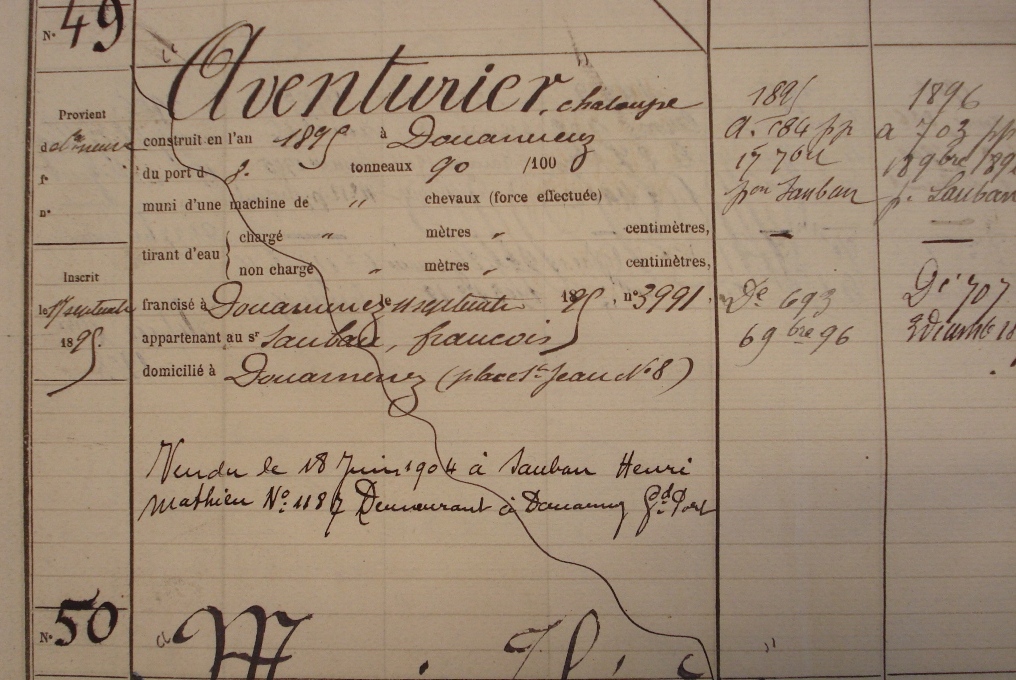 N° 49
Aventurier, chaloupe
Provient
construit en l'an 1895 à Douarnenez
du port d 8. tonneaux 90 /100
f°
muni d'une machine de " chevaux (force effectuée)
n°
tirant d'eau { chargé " mètres " centimètres,
non chargé " mètres " centimètres,
Inscrit
le 17 septembre
1895
francisé à Douarnenez le 11 septembre 1895, n° 3991.
appartenant au sr Sauban, françois
domicilié à Douarnenez (place St Jean N° 8)
Vendu le 18 Juin 1904 à Sauban Henri
Mathieu N° 1187 Demeurant à Douarnez Gd Port
1895
a. 584 pp
17
pon Sauban
—
De 693
6 9bre 96
1896
a 703 pp
1 9bre 189
p. Sauban
—
Dé 707
N° 50